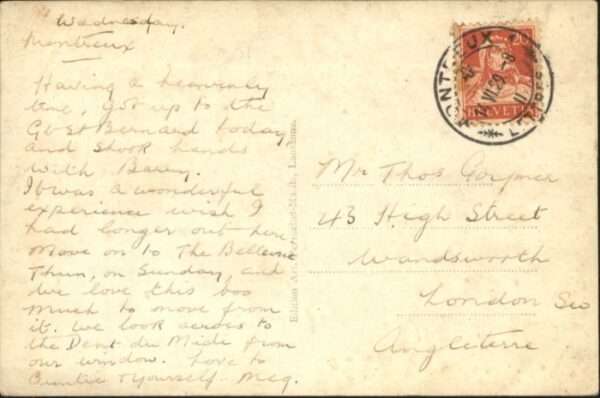 Wednesday.
Montreux
Having a heavenly
time, got up to the
Gt St Bernard today
and shook hands
with Barry.
It was a wonderful
experience wish I
had longer out here
Move on to The Bellevue
Thun, on Sunday, and
we love this too
much to move from
it. We look across to
the Dent du Midi from
our window. Love to
Auntie & Yourself Meg.
MONTREUX
VI.29.-8
LETTRES
HELVETIA
Mr Thos
43 High Street
Wandsworth
London SW
Angleterre